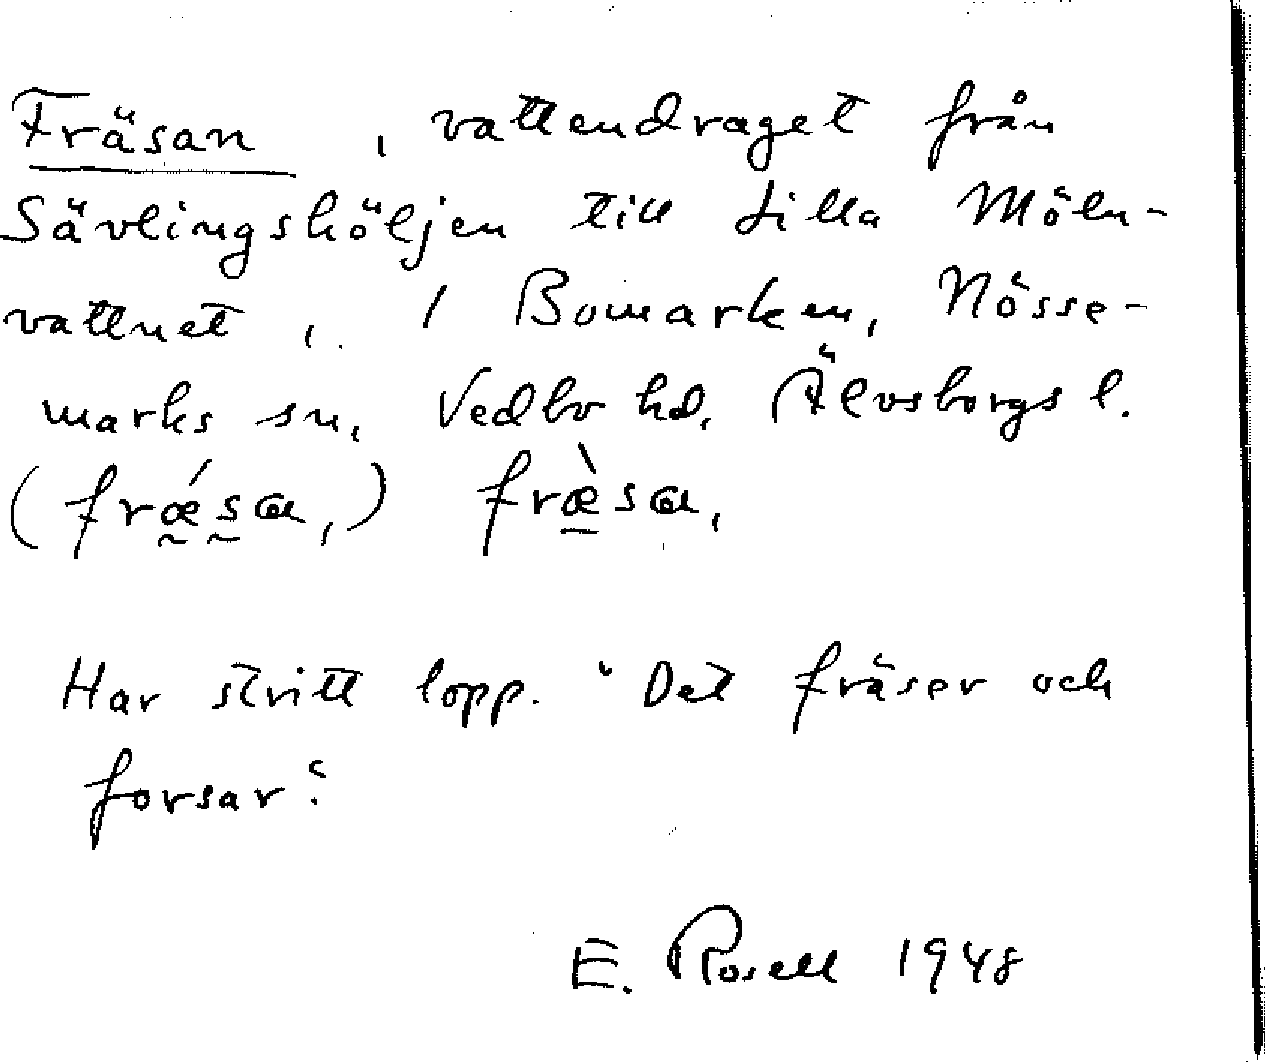 Fräsan , vattendraget från
Sävlingshöljen till Lilla Möln-
vattnet, / Bomarken, Nösse-
marks sn, Vedbo hd, Älvsborgs l.
(frǽsa,) fræ̀sa,
Har stritt lopp. "Det fräser och
forsar".
E. Rosell 1948